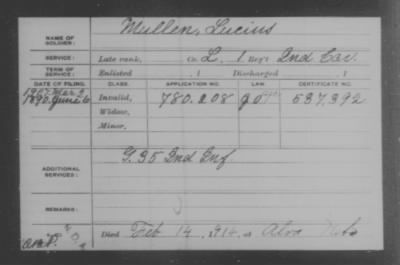 NAME OF SOLDIER: Mullen, Lucius
SERVICE: Late rank, Co. L, 1 Reg't 2nd Cav.
TERM OF SERVICE: Enlisted , 1 Discharged , 1
DATE OF FILING. CLASS. APPLICATION NO. LAW. CERTIFICATE NO.
1907 Mar 2
1890 June 6 Invalid, 780.208 537,392
Widow,
Minor,
ADDITIONAL SERVICES: G. 35 2nd Inf
REMARKS:
Died Feb 14, 1914, at Alva